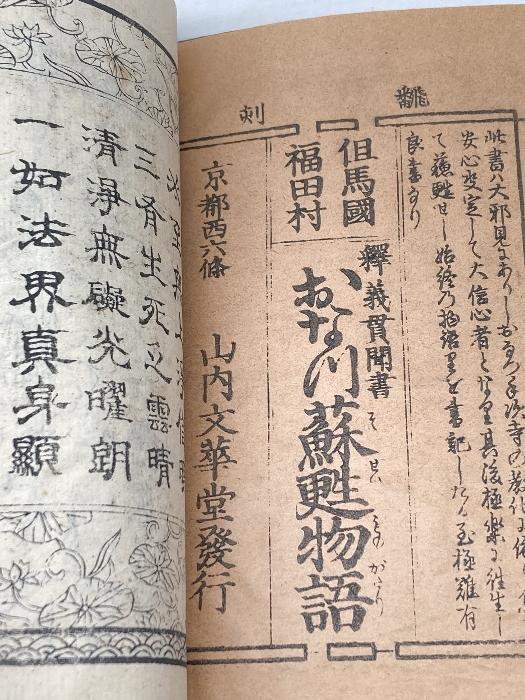 翻刻
此書ハ大邪見
安心决定して大信心者となり其後極楽に往生し
て蘇甦せし始終の物語を書記したる至極難有
良書なり
但馬國
福田村
釋義貫聞書
おなつ蘇甦物語
そせいものがたり
京都西六條
山内文華堂發行
三有生死之雲晴
清淨無礙光曜朗
一如法界真身顯